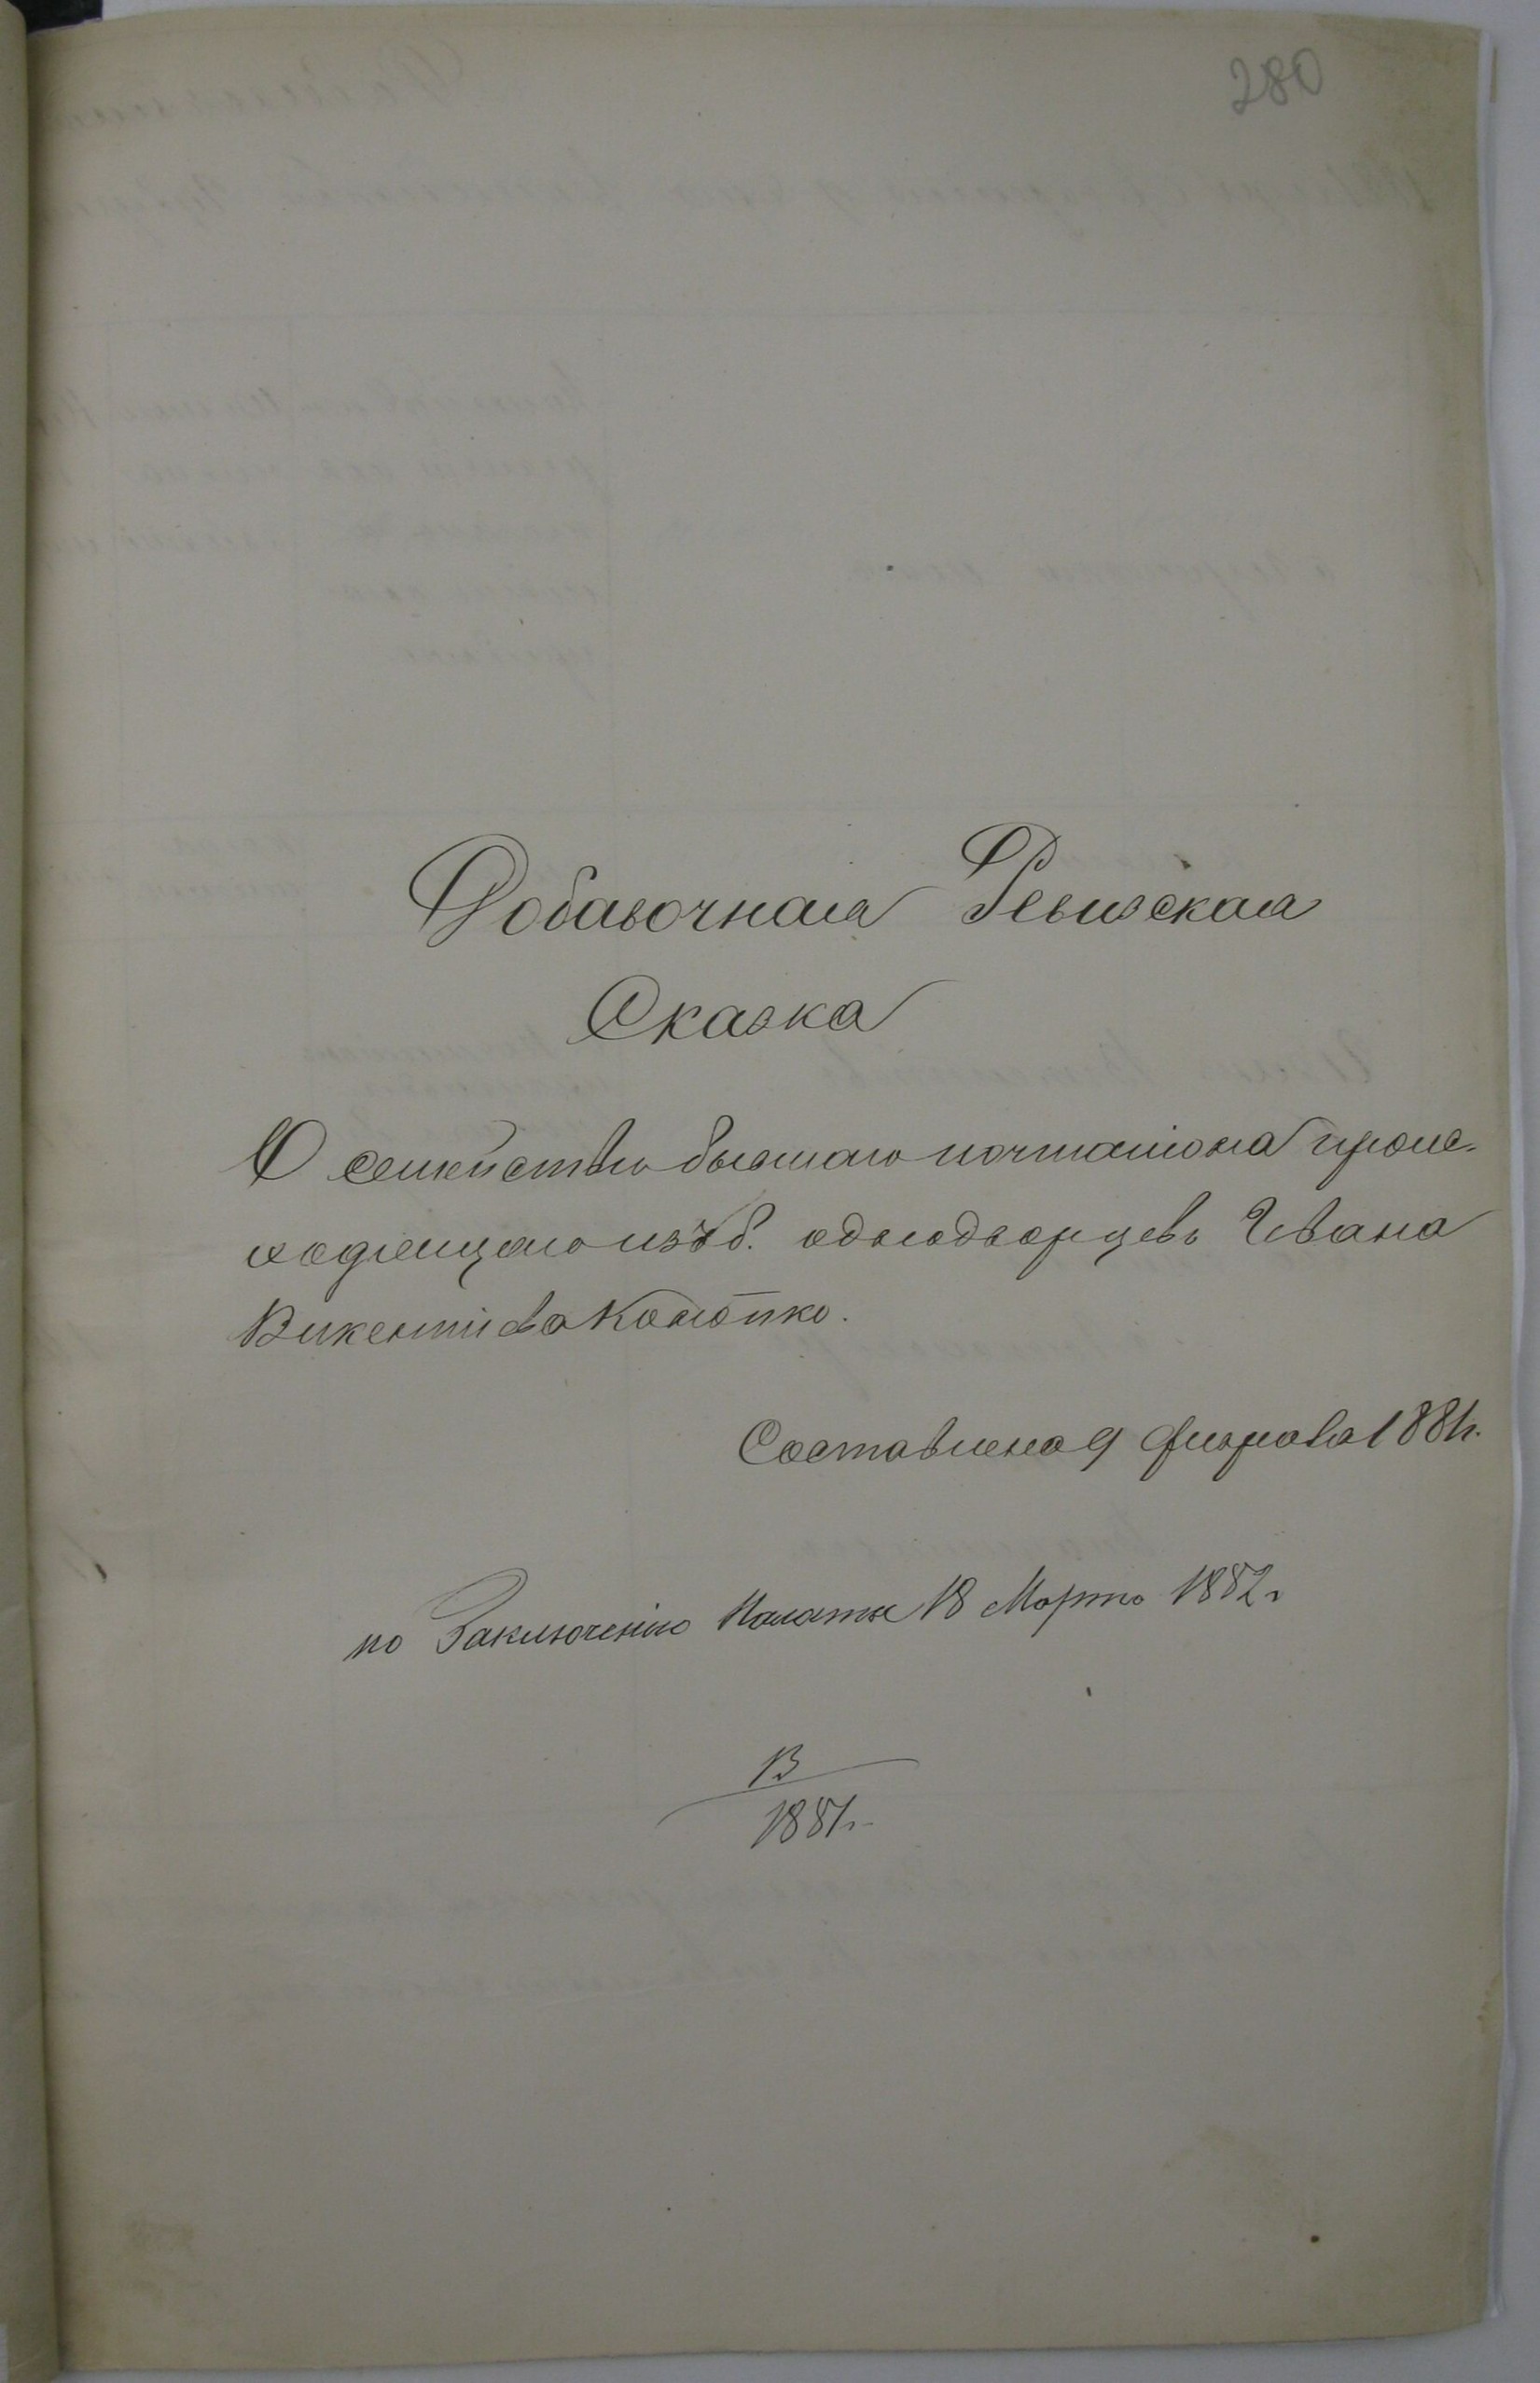 280
Добавочная Ревизская
Сказка
О семействѣ бывшаго почталіона проис-
ходящаго изъ б. однодворцевъ Ивана
Викентіева
Составлена 9 февраля 1881 г.
по Заключенію Палаты 18 Марта 1882 г
1881 г.